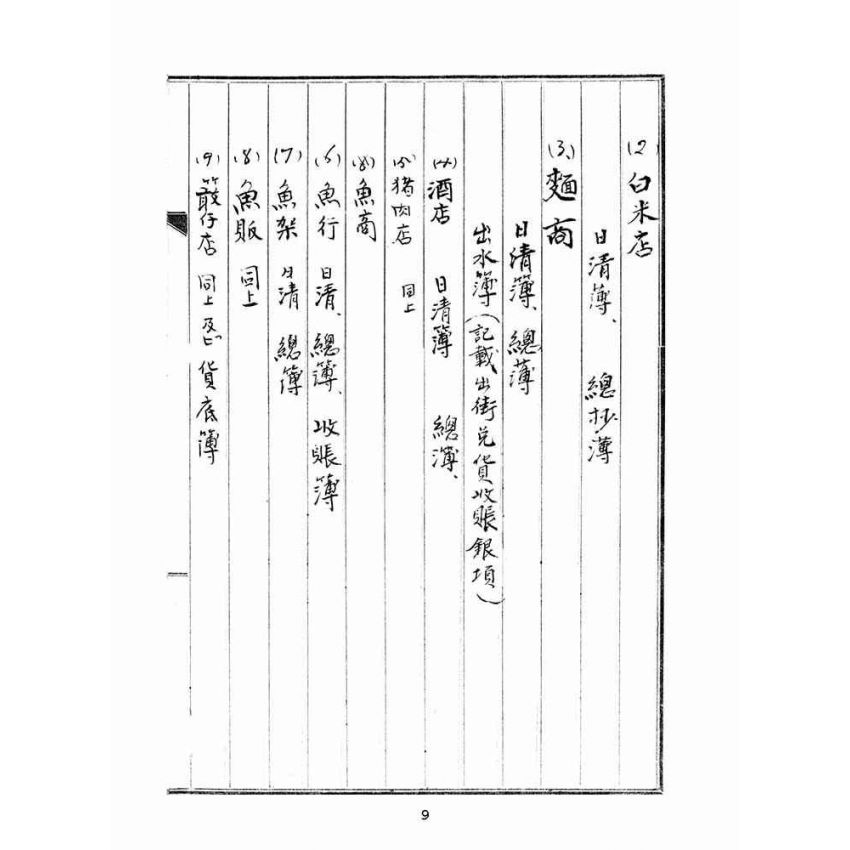 (2)白米店
日清薄、 總抄薄
(3)麵商
日清簿、總薄
出水簿(記載出街兌貨收賬銀項)
(4)酒店 日清簿 總簿、
(5)猪肉店 同上
(8)魚商
(6)魚行 日清、總簿、收賬簿
(7)魚架 日清 總簿
(8)魚販 同上
(9)簽仔店 同上及 貨底簿
9